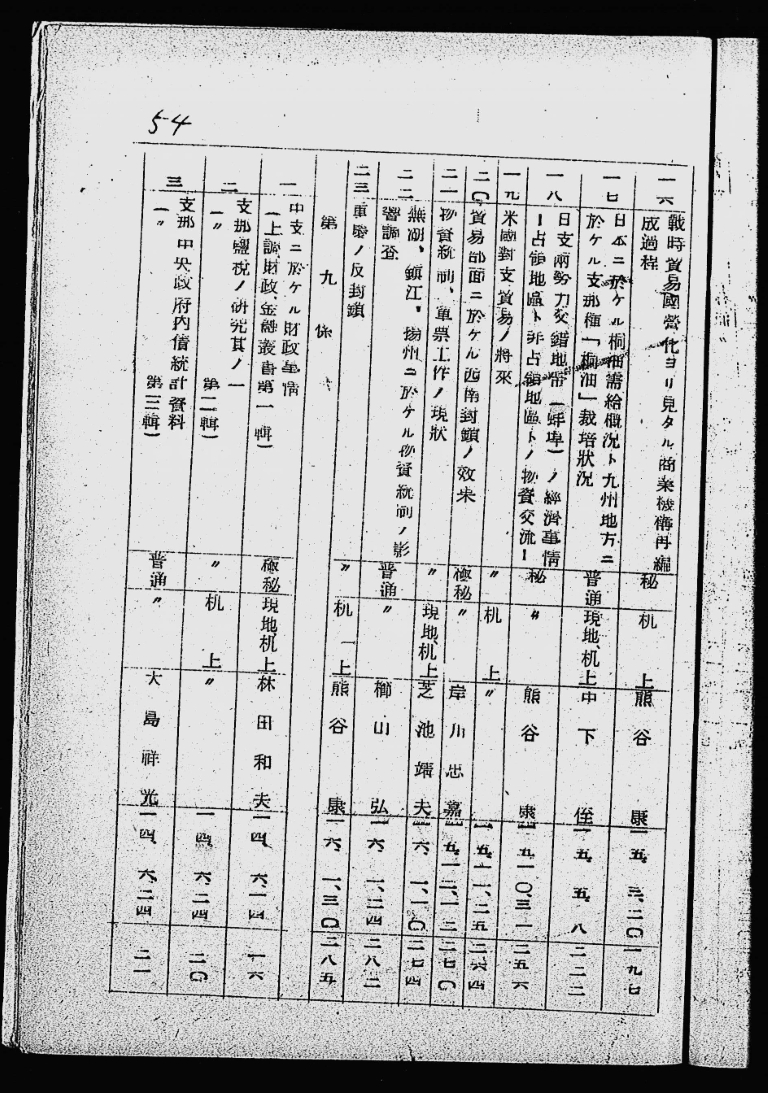 54
一六
戰時貿易國營化ヨリ見タル商業機構再編
成過程
秘
机上
熊谷康
一五、三、二〇
一九七
一七
日本ニ於ケル桐油需給概況ト九州地方ニ
於ケル支那種「桐油」栽培狀況
普通
現地、机上
中下侄
一五、五、八
二二二
一八
日支兩勢力交錯地帶(蚌埠)ノ經濟事情
―占領地區ト非占領地區トノ物資交流―
秘
〃
熊谷康
一五、一〇、三一
二五六
一九
米國對支貿易ノ將來
〃
机上
〃
一五、一一、二五
二六四
二〇
貿易部面ニ於ケル西南封鎖ノ效果
極秘
〃
岸川忠嘉
一五、一二、一三
二七〇
二一
物資統制、軍票工作ノ現狀
〃
現地机上
芝池靖夫
一六、一、一〇
二七四
二二
蕪湖、鎮江、揚州ニ於ケル物資統制ノ影
響調査
普通
〃
櫛山弘
一六、一、二四
二八二
二三
重慶ノ反封鎖
〃
机上
熊谷康
一六、一、三〇
二八五
第九係
一
中支ニ於ケル財政事情
(上調財政、金融叢書第一輯)
極秘
現地、机上
林田和夫
一四、六、一四
一六
二
支那鹽稅ノ研究其ノ一
(〃 第二輯)
〃
机上
〃
一四、六、二四
二〇
三
支那中央政府內債統計資料
(〃 第三輯)
普通
〃
大島祥光
一四、六、二四
二一